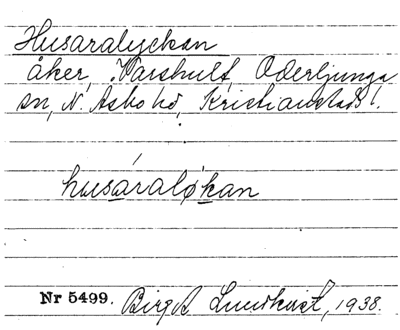 Husaralyckan
åker, Varshult, Oderljunga
sn, N. Asbo hd, Kristianstads l.
husáraløkan
Nr 5499. Birgit Lundkvist, 1938.